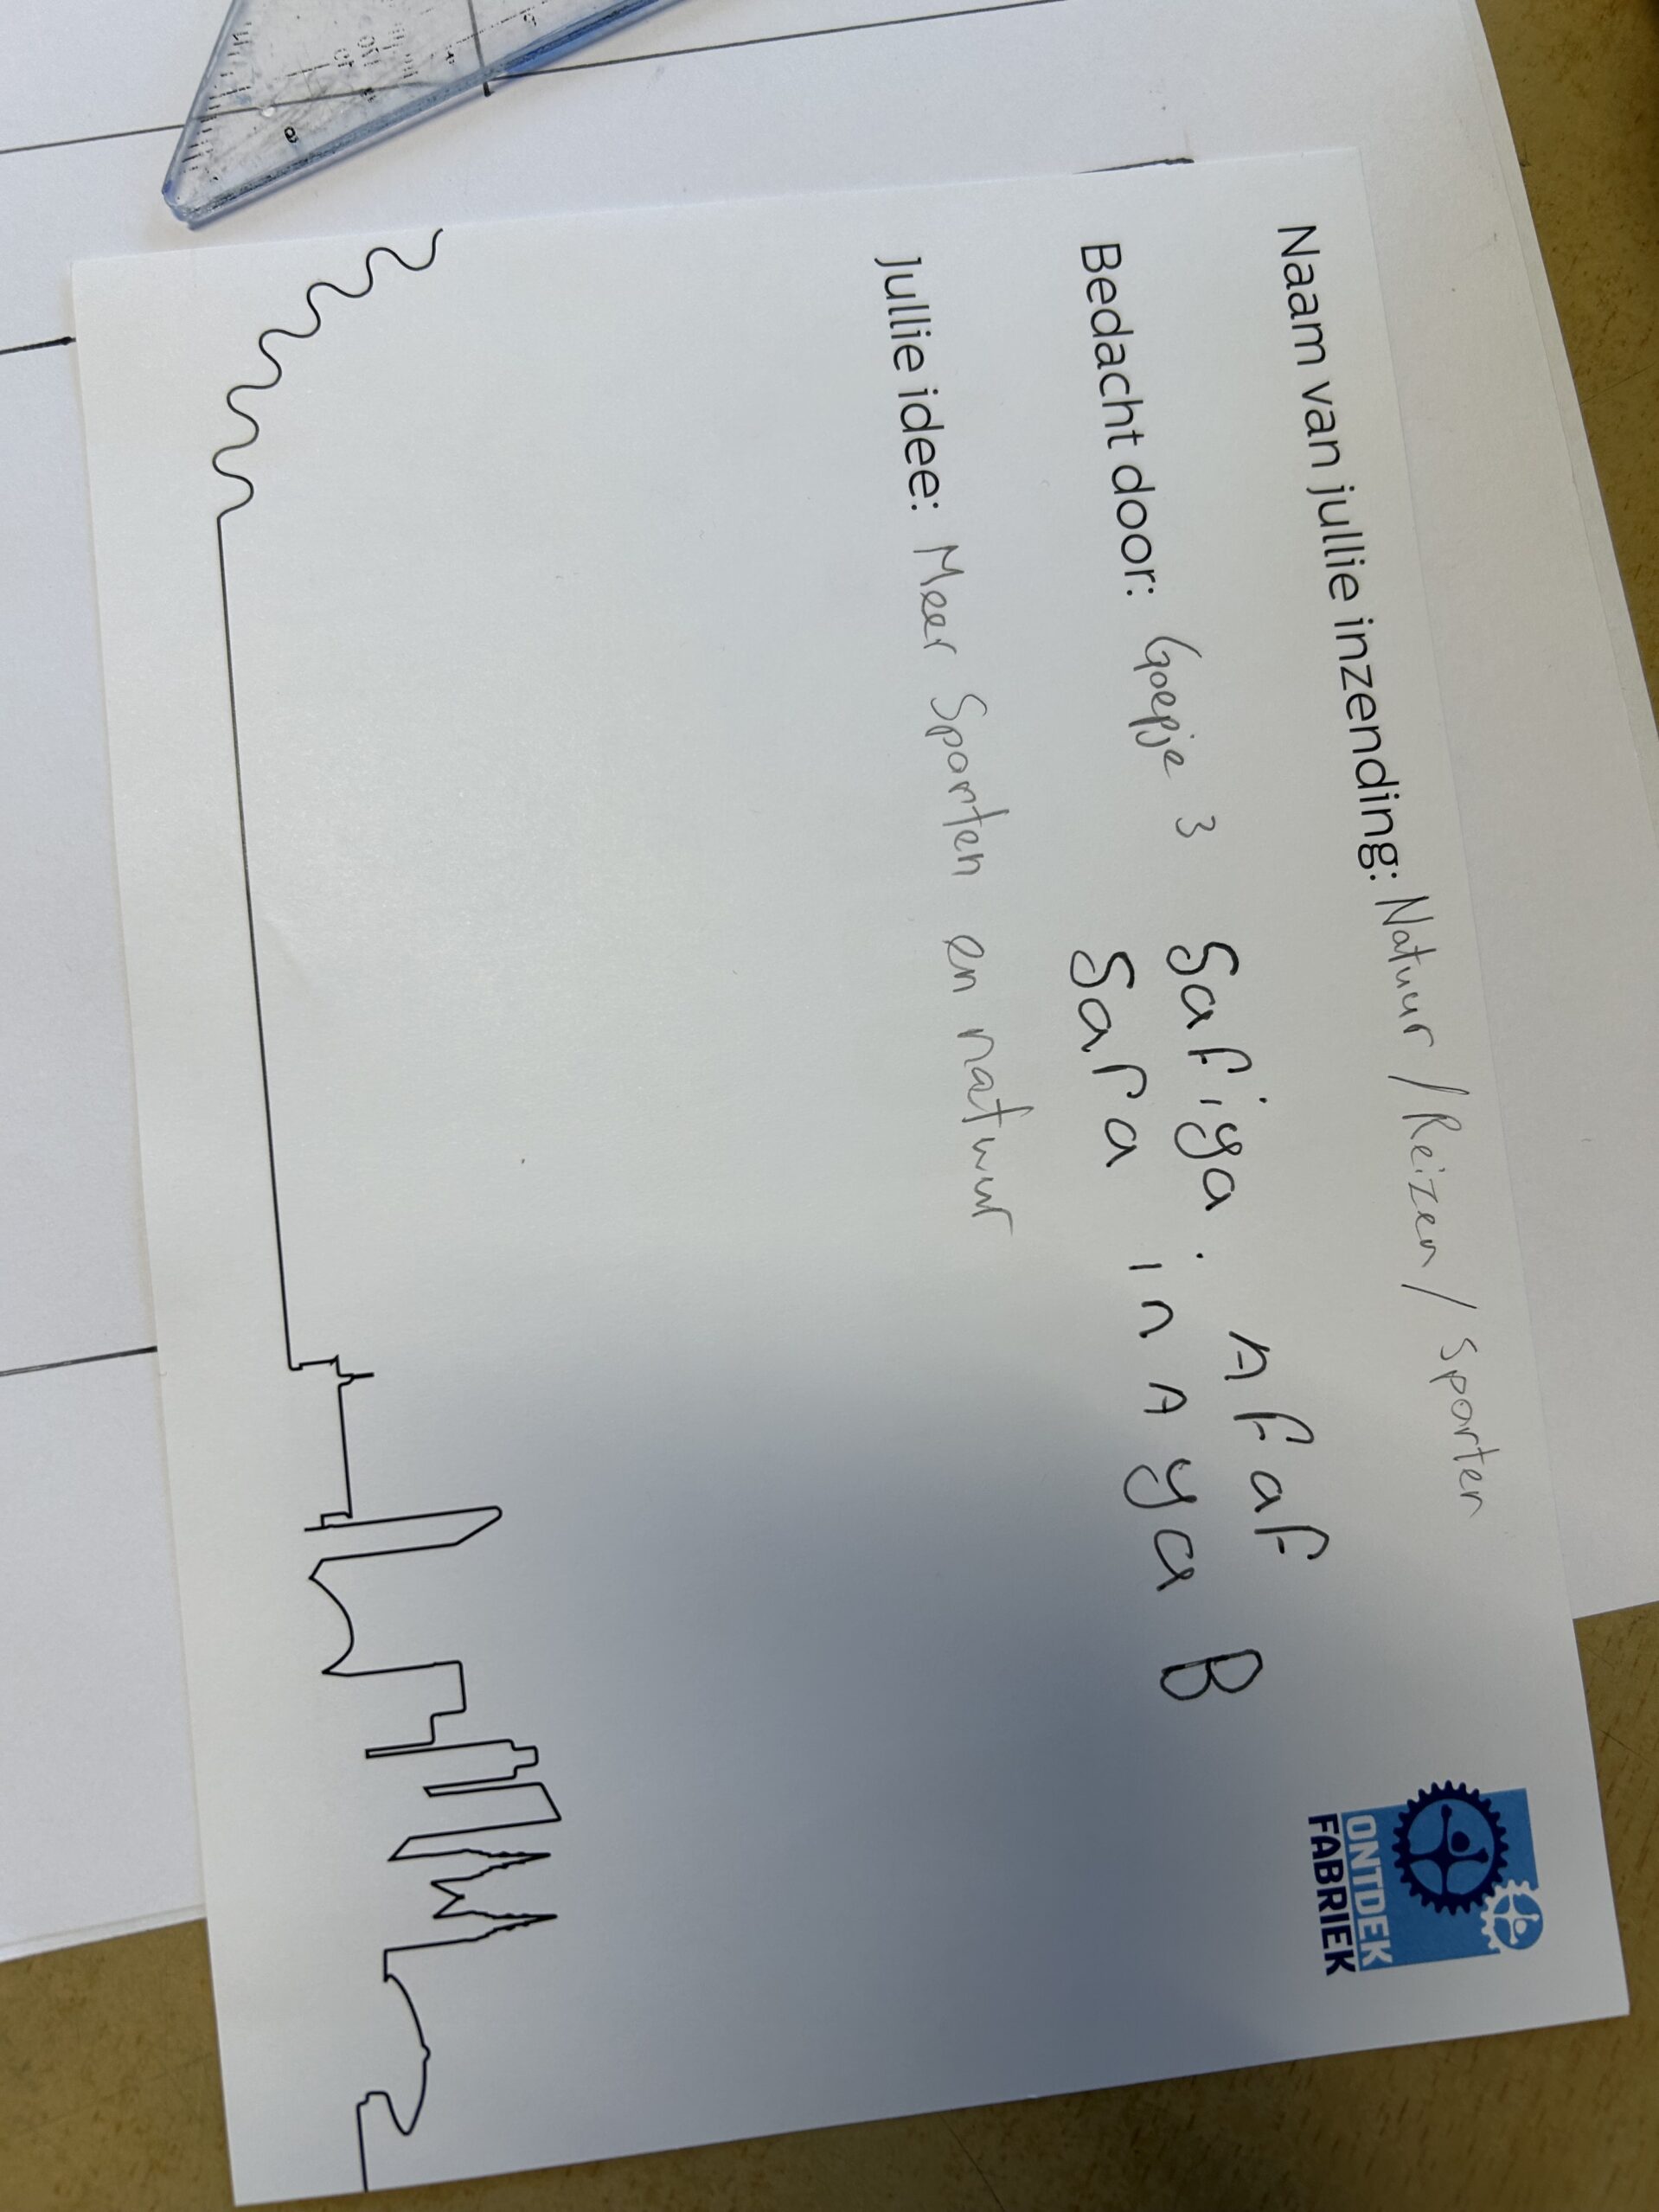 Naam van jullie inzending: Natuur / Reizen / sporten
Bedacht door: Goepje 3 Safiya . AFaF
Sara inAya B
Jullie idee: Meer Sporten en natuur
ONTDEK
FABRIEK